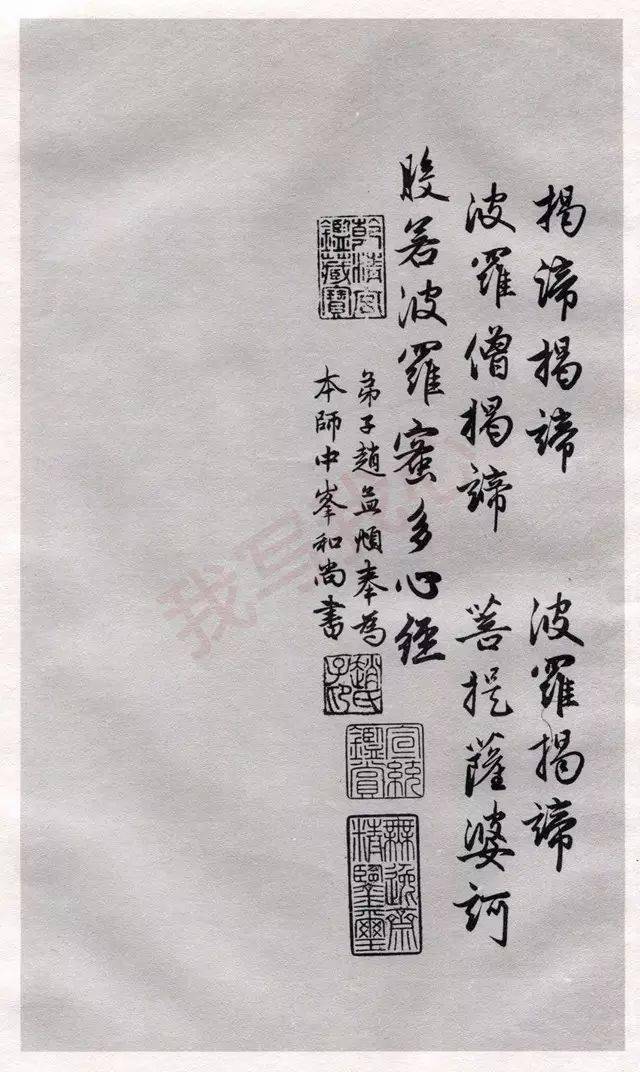 揭諦揭諦　波羅揭諦
波羅僧揭諦　菩提薩婆訶
般若波羅蜜多心經
弟子趙孟頫奉為
本師中峯和尚書
乾清宮
鑑藏寶
趙氏
子印
宣統
鑑賞
無逸齋
精鑒璽
我写我